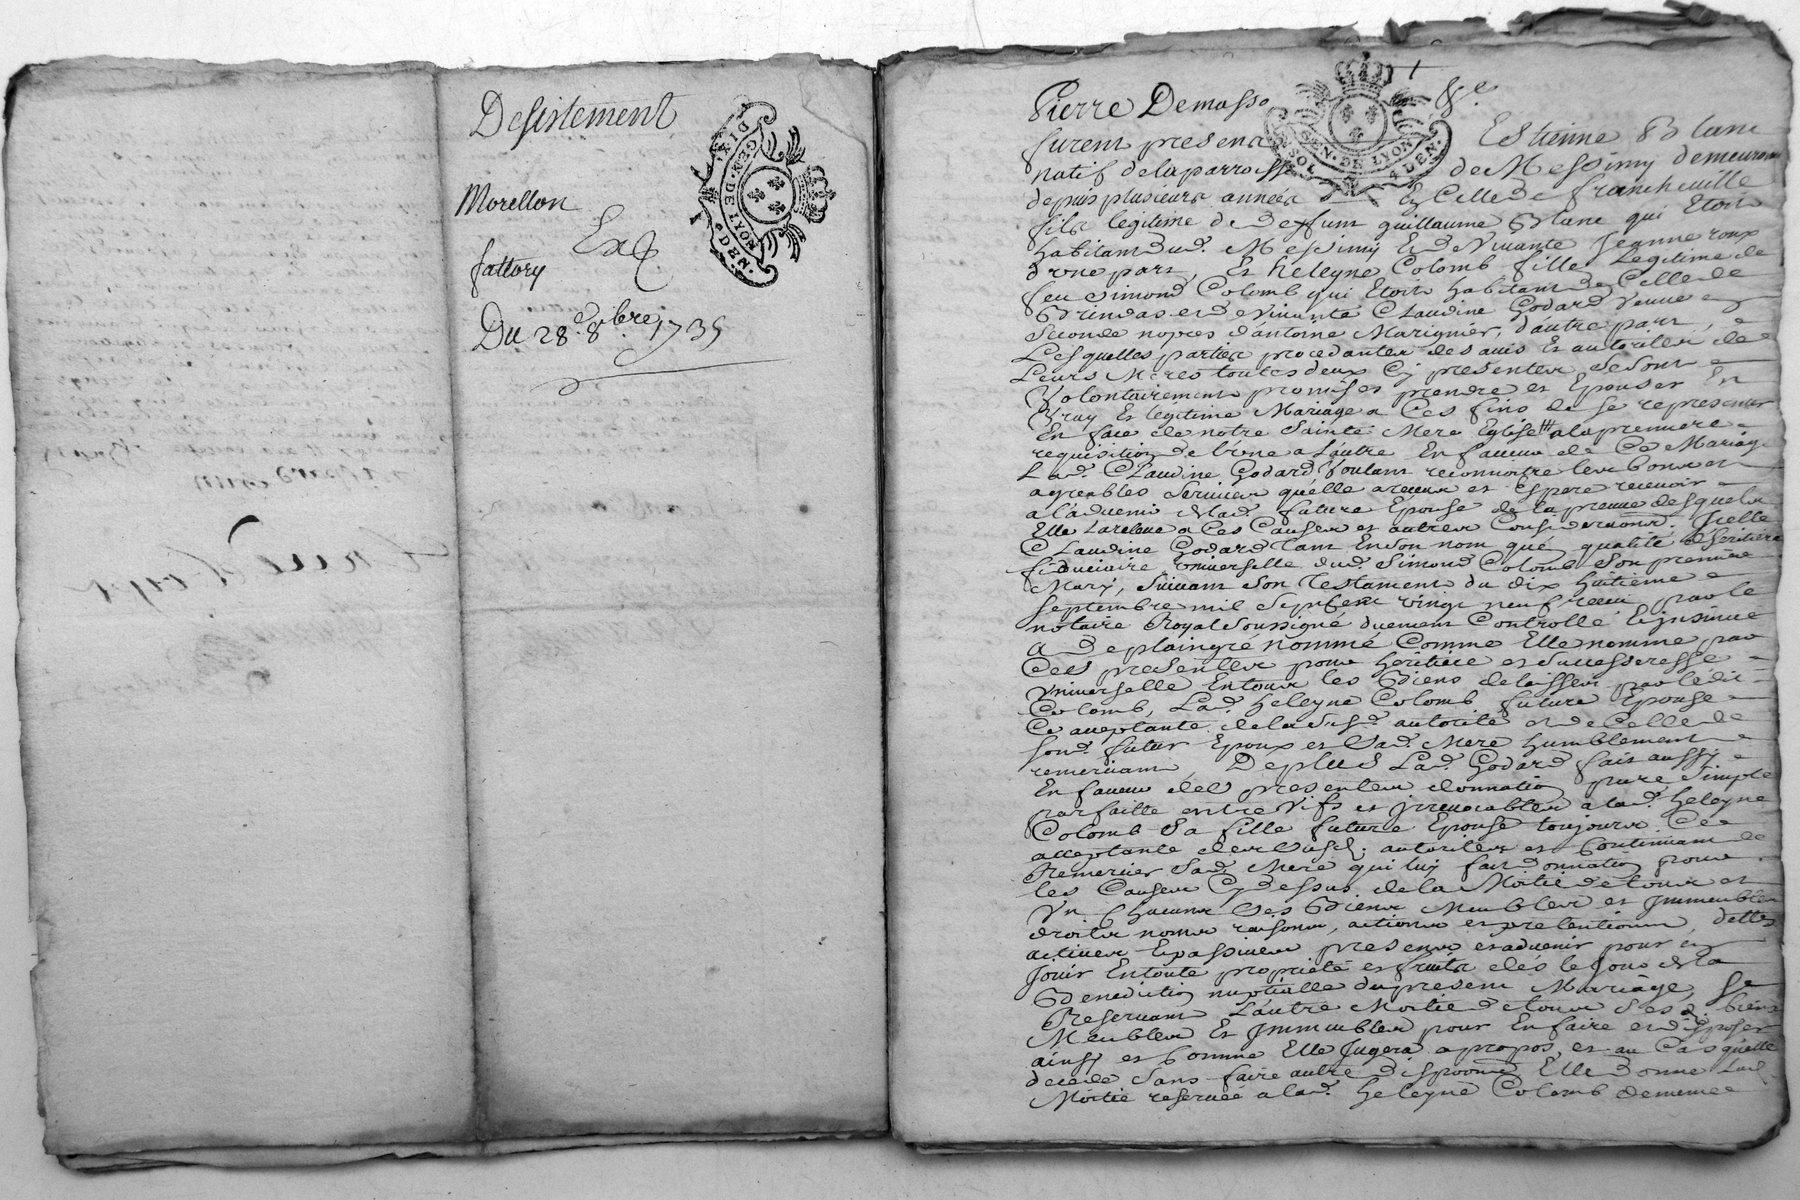 Desistement
Morellon
fattory
Exp
Du 28e 8bre 1735
DIX.
GEN. DE LYON
DEN.
1
Pierre Demasso &c.
SOL
GEN. DE LYON
4 DEN.
furent presena Estienne Blanc
natif de la parroisse de Messimy demeurant
depuis plusieurs années En Celle de francheuille
fils legitime de deffunt guillaume Blanc qui Etoit
habitant dud. Messimy Et de Viuante Jeanne roux
d'vne part, Et heleyne Colomb fille Legitime de
feu Simond Colomb qui Etoit habitant de Celle de
Brindas et de viuante Claudine Godard Veuue en
Seconde nopces d'antoine Marignier, d'autre part,
Lesquelles parties procedantes des auis Et autorites de
Leurs Meres toutes deux Cy presentes se sont
Volontairement promises prendre et Epouser En
Vray Et legitime Mariage a Ces fins de se representer
En face de notre Sainte Mere Eglise a la premiere
requisition de l'vne a l'autre En faueur de Ce Mariage
Lad. Claudine Godard Voulant reconnoitre les bons et
agreables seruices qu'elle a receu et Espere receuoir
a l'aduenir de lad. future Epouse de la preuue desquels
Elle La releue a Ces Causes et autres Considerations. Icelle
Claudine Godard Tant En son nom que qualité d'heritiere
fiduciaire vniuerselle dud. Simond Colomb Son premier
Mary, suiuant Son Testament du dix huitieme
septembre mil sept cent vingt neuf receu par le
notaire Royal Soussigné duement Controllé Et insinué
a de plain gré nommé Comme Elle nomme par
Ces presentes pour heritiere et Successeresse
Vniuerselle En tous les Biens delaissés par ledit
Colomb, Lad. heleyne Colomb future Epouse
Ce acceptante de la Susd. autorité et de Celle de
sond. futur Epoux et Sad. Mere humblement
remerciant De plus Lad. Godard fait aussy
En faueur des presentes donnation pure Simple
parfaitte entre vifs et irreuocables a lad. heleyne
Colomb Sa fille future Epouse toujours Ce
acceptante des Susd. autorites et Continuant de
Remercier Sad. Mere qui luy fait donnation pour
les Causes Cy dessus de la Moitié de tous et
Vn Chacuns Ses Biens Meubles et Immeubles
droits noms raisons, actions et pretentions, dettes
actiues Et passiues presens et aduenir pour en
Jouir En toute proprieté et fruits dés le Jour de la
Benediction nuptialle du present Mariage, Se
Reseruant L'autre Moitié de tous Sesd. biens
Meubles Et Immeubles pour En faire et disposer
ainsy et Comme Elle Jugera a propos, et au Cas qu'elle
decede Sans faire autre disposition Elle donne Lad.
Moitié reseruée a lad. heleyne Colomb